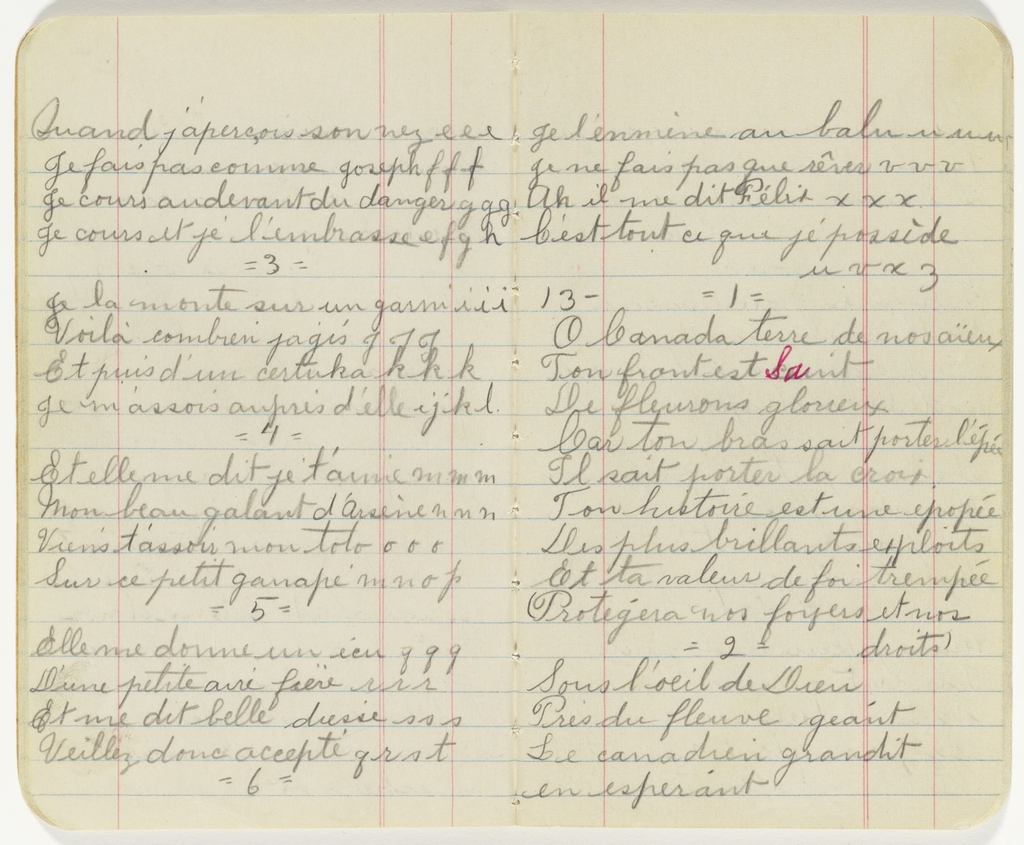 Quand j'aperçois son nez e e e
Je fais pas comme joseph f f f
Je cours au devant du danger g g g
Je cours et je l'embrasse e f g h
= 3 =
Je la monte sur un garni i i i
Voilà combien jagis j j j
Et puis d'un certuka k k k
Je m'assois auprès d'elle i j k l.
= 4 =
Et elle me dit je t'aime m m m
Mon beau galant d'Arsène n n n
Viens t'assoir mon toto o o o
Sur ce petit ganapé m n o p
= 5 =
Elle me donne un écu q q q
D'une petite airé fière r r r
Et me dit belle diesse s s s
Veillez donc accepté q r s t
= 6 =
Je l'enmène au balu u u u
Je ne fais pas que rêver v v v
Ah il me dit Félix x x x
C'est tout ce que jé possède
u v x z
13 - = 1 =
O Canada terre de nos aïeux
Ton front est Saint
De fleurons glorieux
Car ton bras sait porter l'épée
Il sait porter la croix.
Ton histoire est une épopée
Des plus brillants exploits
Et ta valeur de foi trempée
(Protégera nos foyers et nos
droits)
= 2 =
Sous l'oeil de Dieu
Près du fleuve geánt
Le canadien grandit
en esperánt